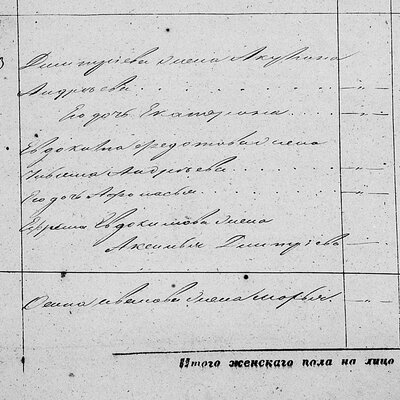 Дмитрiева жена Акулина
Андрѣева
Его дочь Екатерина
Евдокима Федотова жена
Андрѣева
Его дочь Афонасья
Ефрема Евдокимова жена
Аксинья Дмитрiева
Иванова жена Марья
Итого женскаго пола на лицо